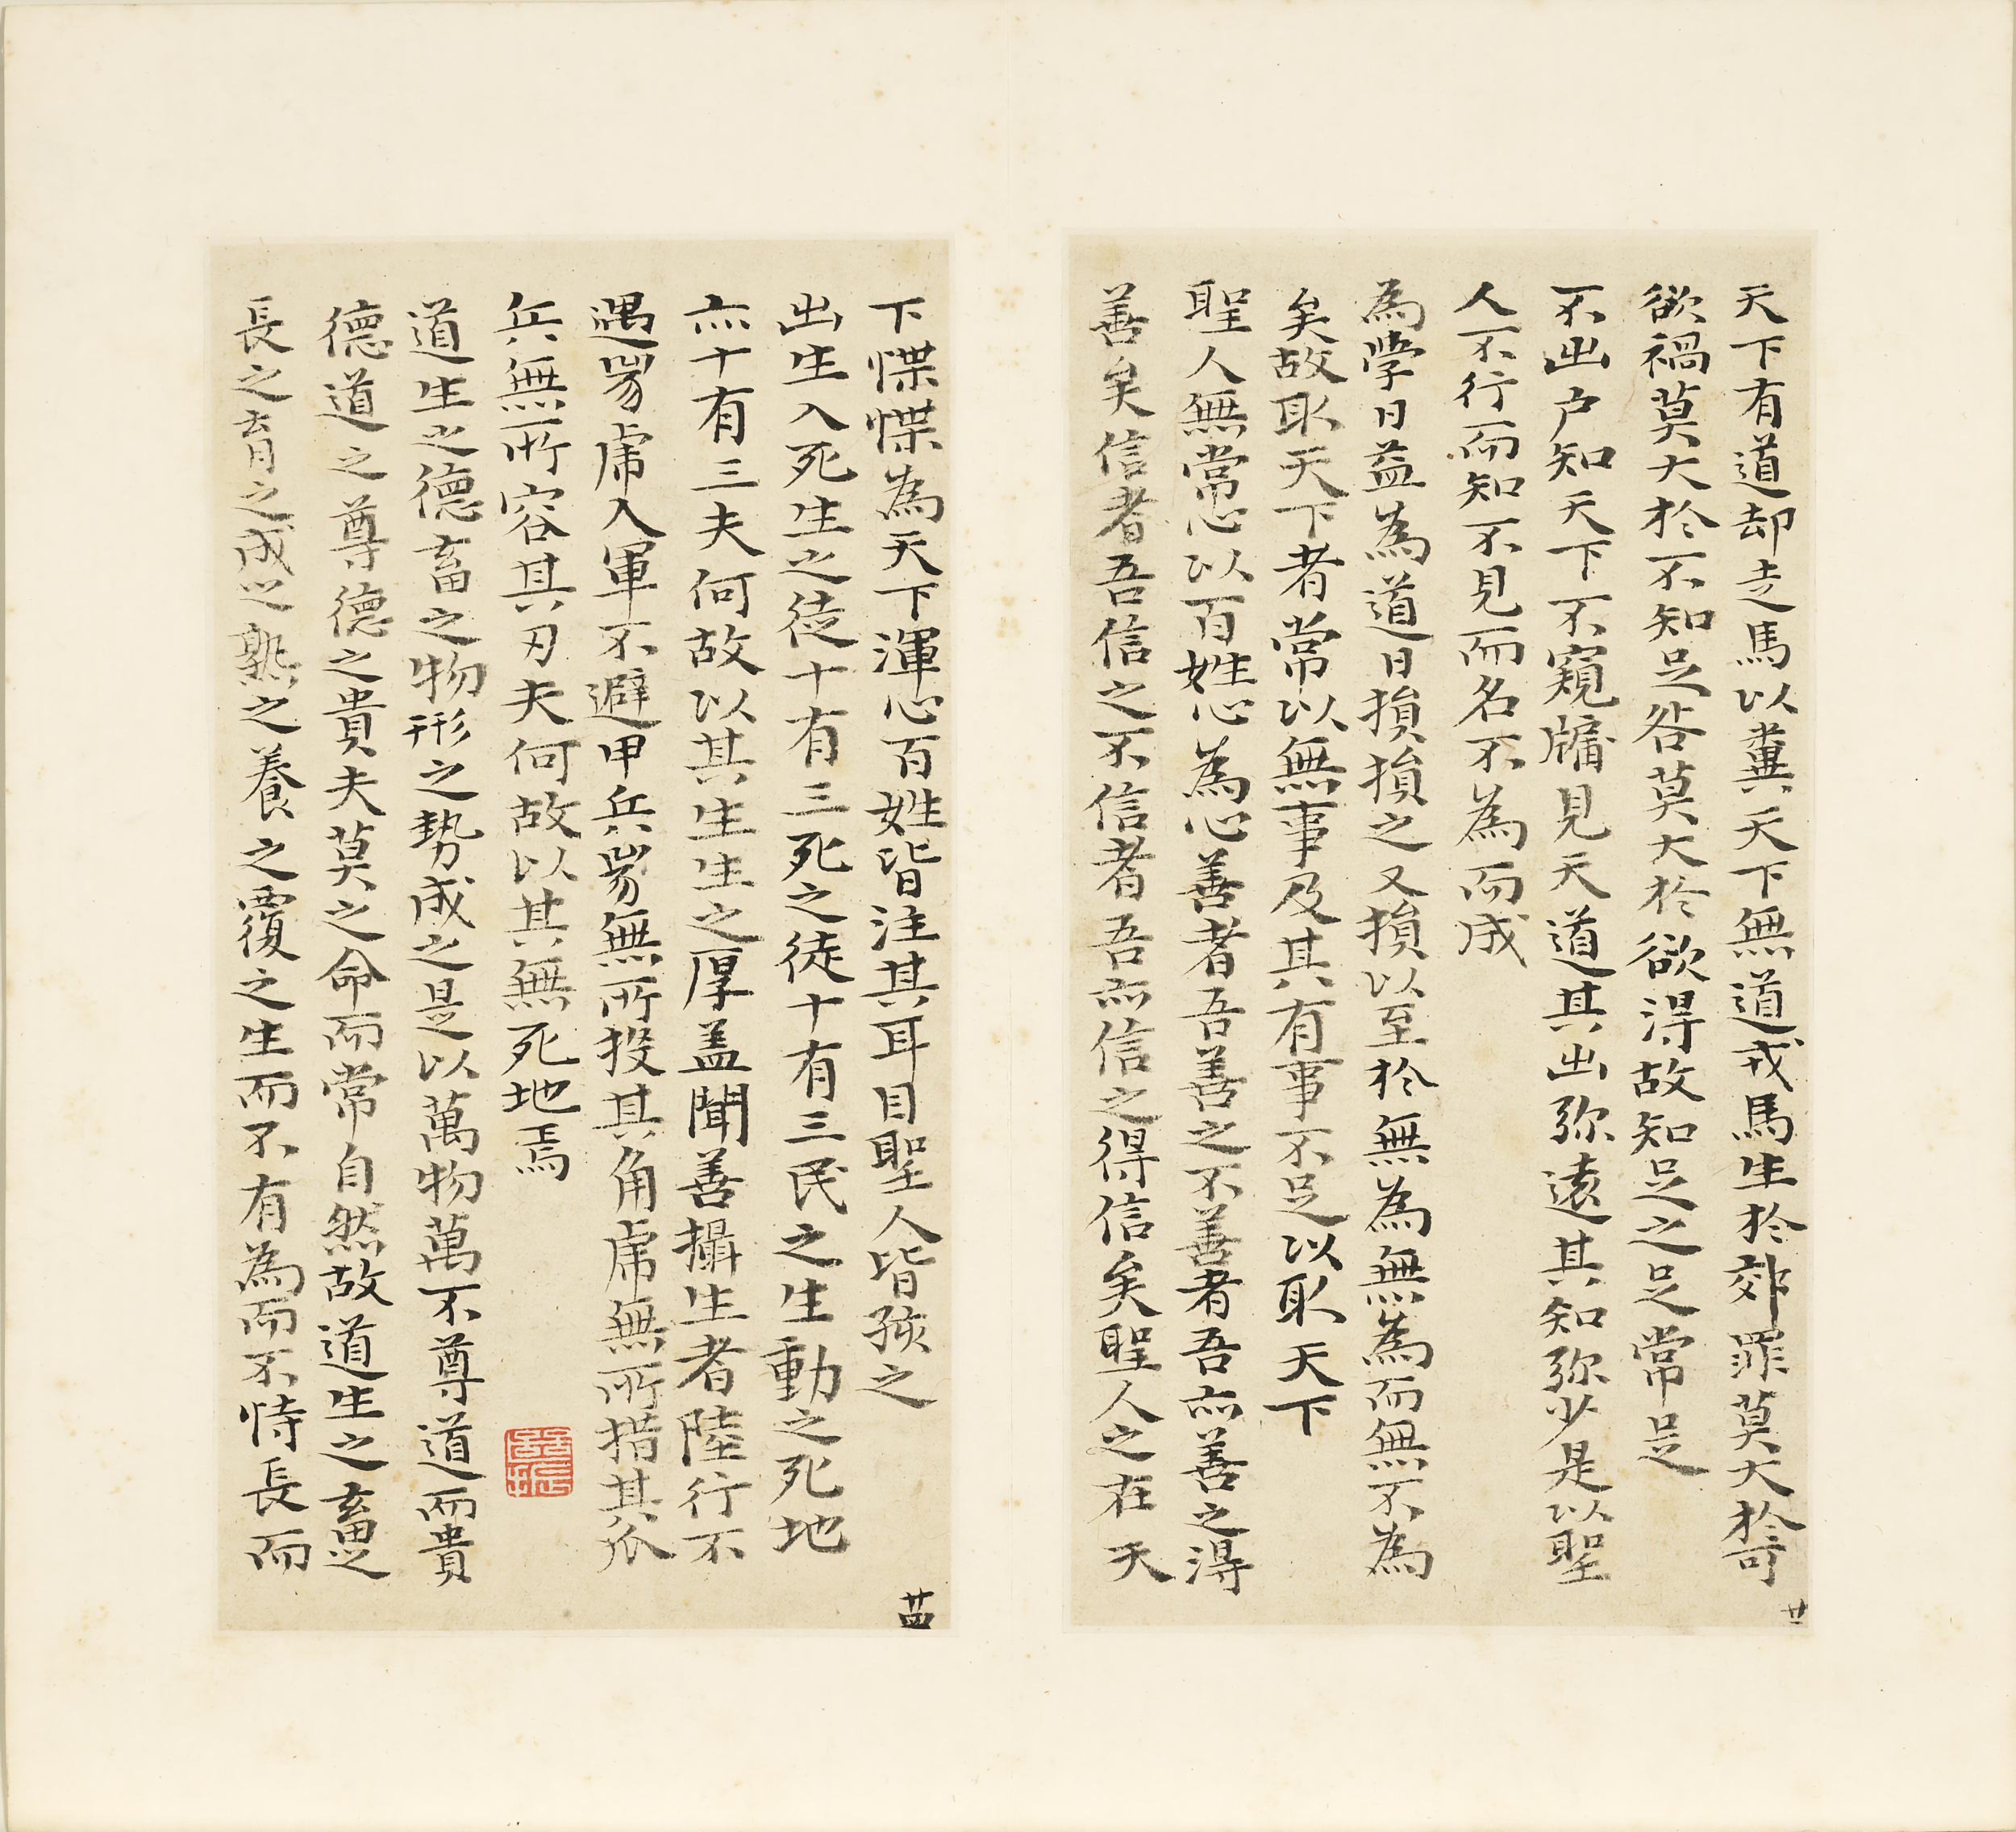 天下有道却走馬以糞天下無道戎馬生於郊罪莫大於可
欲禍莫大於不知足咎莫大於欲淂故知足之足常足
不出户知天下不窺牖見天道其出弥遠其知弥少是以聖
人不行而知不見而名不為而成
為學日益為道日損損之又損以至於無為無為而無不為
矣故取天下者常以無事及其有事不足以取天下
聖人無常心以百姓心為心善者吾善之不善者吾亦善之淂
善矣信者吾信之不信者吾亦信之得信矣聖人之在天
廿
下惵惵為天下渾心百姓皆注其耳目聖人皆孩之
出生入死生之徒十有三死之徒十有三民之生動之死地
亦十有三夫何故以其生生之厚盖聞善攝生者陸行不
遇兕虎入軍不避甲兵兕無所投其角虎無所措其爪
兵無所容其刃夫何故以其無死地焉
道生之德畜之物形之勢成之是以萬物萬不尊道而貴
德道之尊德之貴夫莫之命而常自然故道生之畜之
長之育之成之熟之養之覆之生而不有為而不恃長而